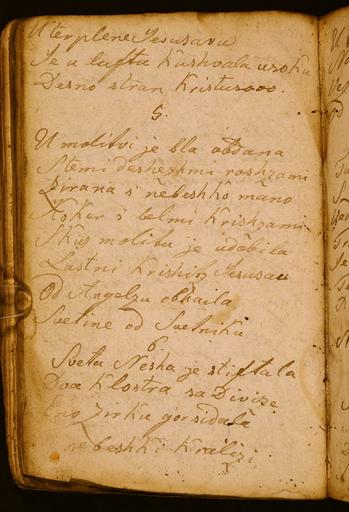 U terplene Jesusavu
Je u luftu kashvala usoku
Desno stran Kristusovo.
5.
U molitvi je bla obdana
S temi desheshmi roshzami
Zirana s nebeshko mano
Koker s belmi Krishzami
Skus molitu je udobila
Lastni Krishiz Jesusau
Od Angelzu obhaila
Svetine od Svetniku
6.
Sveta Nesha je stiftala
Dva Klostra sa Divize
Eno zirku gorsidala
nebeshki Kralizi